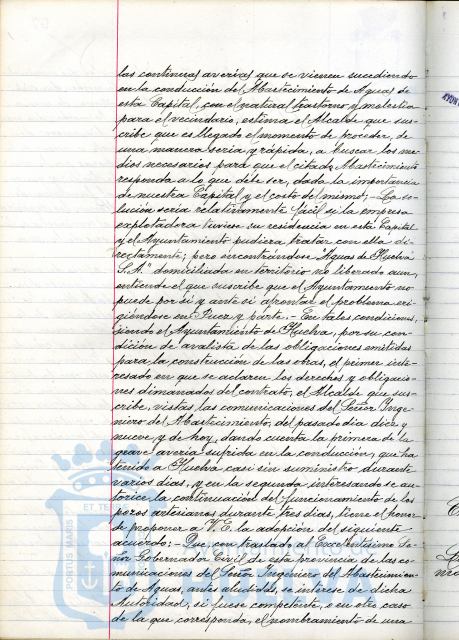 las continuas averías que se vienen sucediendo
en la conducción del Abastecimiento de Aguas de
esta Capital, con el natural trastorno y molestia
para el vecindario, estima el Alcalde que sus-
cribe que es llegado el momento de proceder, de
una manera seria y rápida, a buscar los me-
dios necesarios para que el citado Abastecimiento
responda a lo que debe ser, dada la importancia
de nuestra Capital y el costo del mismo; - La so-
lución sería relativamente fácil si la empresa
explotadora tuviese su residencia en esta Capital
y el Ayuntamiento pudiera tratar con ella di-
rectamente; pero encontrándose "Aguas de Huelva
S.A." domiciliada en territorio no liberado aun,
entiende el que suscribe que el Ayuntamiento no
puede por sí y ante sí afrontar el problema eri-
giéndose en Juez y parte. - En tales condiciones,
siendo el Ayuntamiento de Huelva, por su con-
dición de avalista de las obligaciones emitidas
para la construcción de las obras, el primer inte-
resado en que se aclaren los derechos y obligacio-
nes dimanados del contrato, el Alcalde que sus-
cribe, vistas, las comunicaciones del Señor Inge-
niero del Abastecimiento, del pasado día diez y
nueve, y de hoy, dando cuenta la primera de la
grave avería sufrida en la conducción, que ha
tenido a Huelva casi sin suministro, durante
varios días, y en la segunda interesando se au-
torice la continuación del funcionamiento de los
pozos artesianos durante tres días, tiene el honor
de proponer a V.E. la adopción del siguiente
acuerdo: - Que, con traslado al Excelentísimo Se-
ñor Gobernador Civil de esta provincia de las co-
municaciones del Señor Ingeniero del Abastecimien-
to de Aguas, antes aludidas, se interese de dicha
Autoridad, si fuese competente, o en otro caso
de la que corresponda, el nombramiento de una
PORTUS MARIS
ET TE